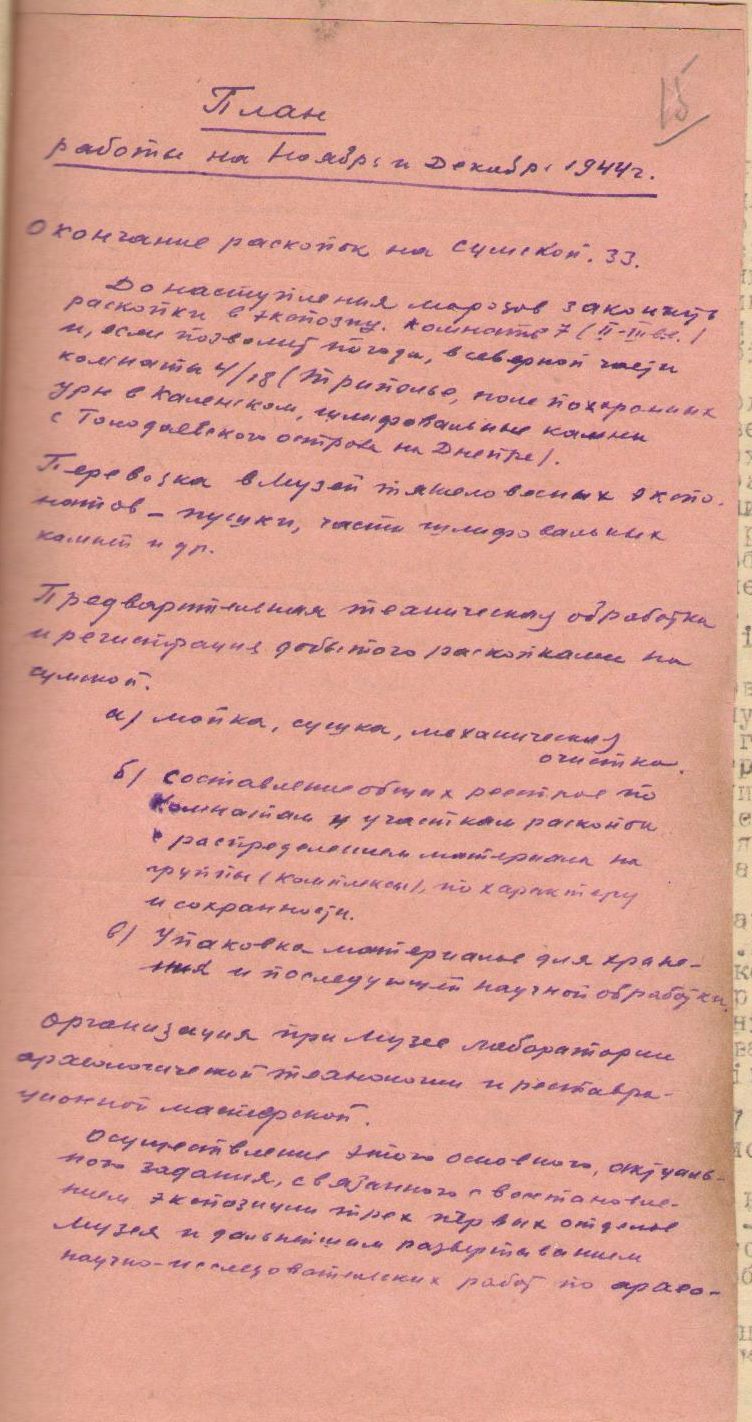 15
План
работы на Ноябрь и Декабрь 1944 г.
Окончание раскопок на Сумской. 33.
До наступления морозов закончить
раскопки в экспозиц. комнате 7 (II-III вв.)
и, если позволит погода, в северной части
комнаты 4/18 (Триполье, поле похоронных
урн в Каменском, шлифовальные камни
с острова на Днепре).
Перевозка в Музей тяжеловесных экспо-
натов – пушки, части шлифовальных
камней и др.
Предварительная техническая обработка
и регистрация добытого раскопками на
Сумской.
а) мойка, сушка, механическая
очистка.
б) составление общих реестров по
комнатам и участкам раскопок
с распределением материала на
группы (комплексы), по характеру
и сохранности.
в) Упаковка материалов для хране-
ния и последующей научной обработки.
Организация при Музее лаборатории
археологической технологии и реставра-
ционной мастерской.
Осуществление этого основного, актуаль-
ного задания, связанного с восстановле-
нием экспозиции трех первых отделов
Музея и дальнейшим развертыванием
научно-исследовательских работ по архео-